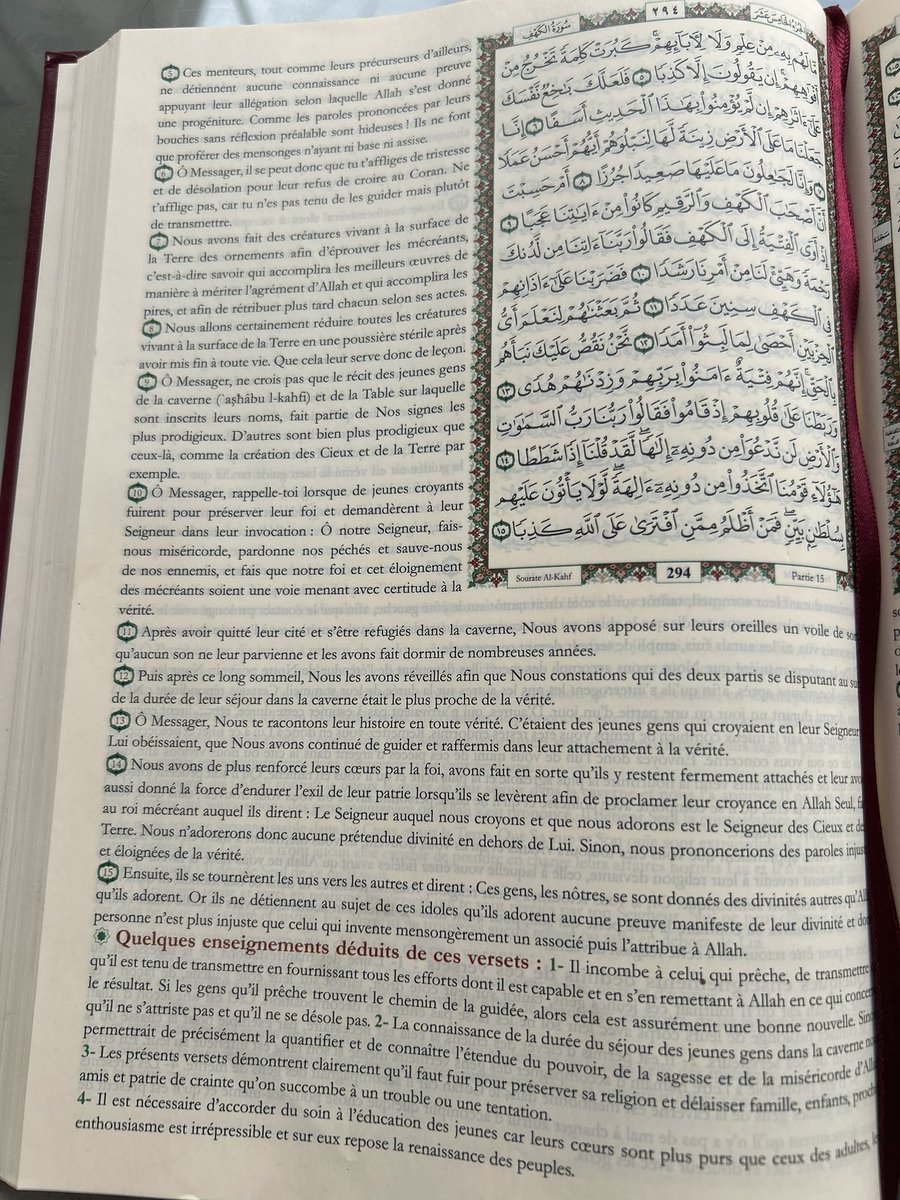 سُورَةُ الكَهْفِ
٢٩٤
الجُزْءُ الخَامِسَ عَشَرَ
مَّا لَهُم بِهِۦ مِنْ عِلْمٍ وَلَا لِأٓبَآئِهِمْ ۚ كَبُرَتْ كَلِمَةً تَخْرُجُ مِنْ
أَفْوَٰهِهِمْ ۚ إِن يَقُولُونَ إِلَّا كَذِبًا ٥ فَلَعَلَّكَ بَٰخِعٌ نَّفْسَكَ
عَلَىٰٓ ءَاثَٰرِهِمْ إِن لَّمْ يُؤْمِنُوا۟ بِهَٰذَا ٱلْحَدِيثِ أَسَفًا ٦ إِنَّا
جَعَلْنَا مَا عَلَى ٱلْأَرْضِ زِينَةً لَّهَا لِنَبْلُوَهُمْ أَيُّهُمْ أَحْسَنُ عَمَلًا
٧ وَإِنَّا لَجَٰعِلُونَ مَا عَلَيْهَا صَعِيدًا جُرُزًا ٨ أَمْ حَسِبْتَ
أَنَّ أَصْحَٰبَ ٱلْكَهْفِ وَٱلرَّقِيمِ كَانُوا۟ مِنْ ءَايَٰتِنَا عَجَبًا ٩
إِذْ أَوَى ٱلْفِتْيَةُ إِلَى ٱلْكَهْفِ فَقَالُوا۟ رَبَّنَآ ءَاتِنَا مِن لَّدُنكَ
رَحْمَةً وَهَيِّئْ لَنَا مِنْ أَمْرِنَا رَشَدًا ١٠ فَضَرَبْنَا عَلَىٰٓ ءَاذَانِهِمْ
فِى ٱلْكَهْفِ سِنِينَ عَدَدًا ١١ ثُمَّ بَعَثْنَٰهُمْ لِنَعْلَمَ أَىُّ
ٱلْحِزْبَيْنِ أَحْصَىٰ لِمَا لَبِثُوٓا۟ أَمَدًا ١٢ نَّحْنُ نَقُصُّ عَلَيْكَ نَبَأَهُم
بِٱلْحَقِّ ۚ إِنَّهُمْ فِتْيَةٌ ءَامَنُوا۟ بِرَبِّهِمْ وَزِدْنَٰهُمْ هُدًى ١٣
وَرَبَطْنَا عَلَىٰ قُلُوبِهِمْ إِذْ قَامُوا۟ فَقَالُوا۟ رَبُّنَا رَبُّ ٱلسَّمَٰوَٰتِ
وَٱلْأَرْضِ لَن نَّدْعُوَا۟ مِن دُونِهِۦٓ إِلَٰهًا ۖ لَّقَدْ قُلْنَآ إِذًا شَطَطًا ١٤
هَٰٓؤُلَآءِ قَوْمُنَا ٱتَّخَذُوا۟ مِن دُونِهِۦٓ ءَالِهَةً ۖ لَّوْلَا يَأْتُونَ عَلَيْهِم
بِسُلْطَٰنٍۭ بَيِّنٍ ۖ فَمَنْ أَظْلَمُ مِمَّنِ ٱفْتَرَىٰ عَلَى ٱللَّهِ كَذِبًا ١٥
Sourate Al-Kahf
294
Partie 15
5 Ces menteurs, tout comme leurs précurseurs d'ailleurs,
ne détiennent aucune connaissance ni aucune preuve
appuyant leur allégation selon laquelle Allah s'est donné
une progéniture. Comme les paroles prononcées par leurs
bouches sans réflexion préalable sont hideuses ! Ils ne font
que proférer des mensonges n'ayant ni base ni assise.
6 Ô Messager, il se peut donc que tu t'affliges de tristesse
et de désolation pour leur refus de croire au Coran. Ne
t'afflige pas, car tu n'es pas tenu de les guider mais plutôt
de transmettre.
7 Nous avons fait des créatures vivant à la surface de
la Terre des ornements afin d'éprouver les mécréants,
c'est-à-dire savoir qui accomplira les meilleurs œuvres de
manière à mériter l'agrément d'Allah et qui accomplira les
pires, et afin de rétribuer plus tard chacun selon ses actes.
8 Nous allons certainement réduire toutes les créatures
vivant à la surface de la Terre en une poussière stérile après
avoir mis fin à toute vie. Que cela leur serve donc de leçon.
9 Ô Messager, ne crois pas que le récit des jeunes gens
de la caverne (`aṣḥâbu l-kahfi) et de la Table sur laquelle
sont inscrits leurs noms, fait partie de Nos signes les
plus prodigieux. D'autres sont bien plus prodigieux que
ceux-là, comme la création des Cieux et de la Terre par
exemple.
10 Ô Messager, rappelle-toi lorsque de jeunes croyants
fuirent pour préserver leur foi et demandèrent à leur
Seigneur dans leur invocation : Ô notre Seigneur, fais-
nous miséricorde, pardonne nos péchés et sauve-nous
de nos ennemis, et fais que notre foi et cet éloignement
des mécréants soient une voie menant avec certitude à la
vérité.
11 Après avoir quitté leur cité et s'être refugiés dans la caverne, Nous avons apposé sur leurs oreilles un voile de
qu'aucun son ne leur parvienne et les avons fait dormir de nombreuses années.
12 Puis après ce long sommeil, Nous les avons réveillés afin que Nous constations qui des deux partis se disputant au
de la durée de leur séjour dans la caverne était le plus proche de la vérité.
13 Ô Messager, Nous te racontons leur histoire en toute vérité. C'étaient des jeunes gens qui croyaient en leur Seigneur
Lui obéissaient, que Nous avons continué de guider et raffermis dans leur attachement à la vérité.
14 Nous avons de plus renforcé leurs cœurs par la foi, avons fait en sorte qu'ils y restent fermement attachés et leur
aussi donné la force d'endurer l'exil de leur patrie lorsqu'ils se levèrent afin de proclamer leur croyance en Allah Seul,
au roi mécréant auquel ils dirent : Le Seigneur auquel nous croyons et que nous adorons est le Seigneur des Cieux et de
Terre. Nous n'adorerons donc aucune prétendue divinité en dehors de Lui. Sinon, nous prononcerions des paroles
et éloignées de la vérité.
15 Ensuite, ils se tournèrent les uns vers les autres et dirent : Ces gens, les nôtres, se sont donnés des divinités autres
qu'ils adorent. Or ils ne détiennent au sujet de ces idoles qu'ils adorent aucune preuve manifeste de leur divinité et
personne n'est plus injuste que celui qui invente mensongèrement un associé puis l'attribue à Allah.
Quelques enseignements déduits de ces versets : 1- Il incombe à celui qui prêche, de transmettre
qu'il est tenu de transmettre en fournissant tous les efforts dont il est capable et en s'en remettant à Allah en ce qui
le résultat. Si les gens qu'il prêche trouvent le chemin de la guidée, alors cela est assurément une bonne nouvelle.
qu'il ne s'attriste pas et qu'il ne se désole pas. 2- La connaissance de la durée du séjour des jeunes gens dans la caverne
permettrait de précisément la quantifier et de connaître l'étendue du pouvoir, de la sagesse et de la miséricorde
3- Les présents versets démontrent clairement qu'il faut fuir pour préserver sa religion et délaisser famille, enfants,
amis et patrie de crainte qu'on succombe à un trouble ou une tentation.
4- Il est nécessaire d'accorder du soin à l'éducation des jeunes car leurs cœurs sont plus purs que ceux des adultes,
enthousiasme est irrépressible et sur eux repose la renaissance des peuples.